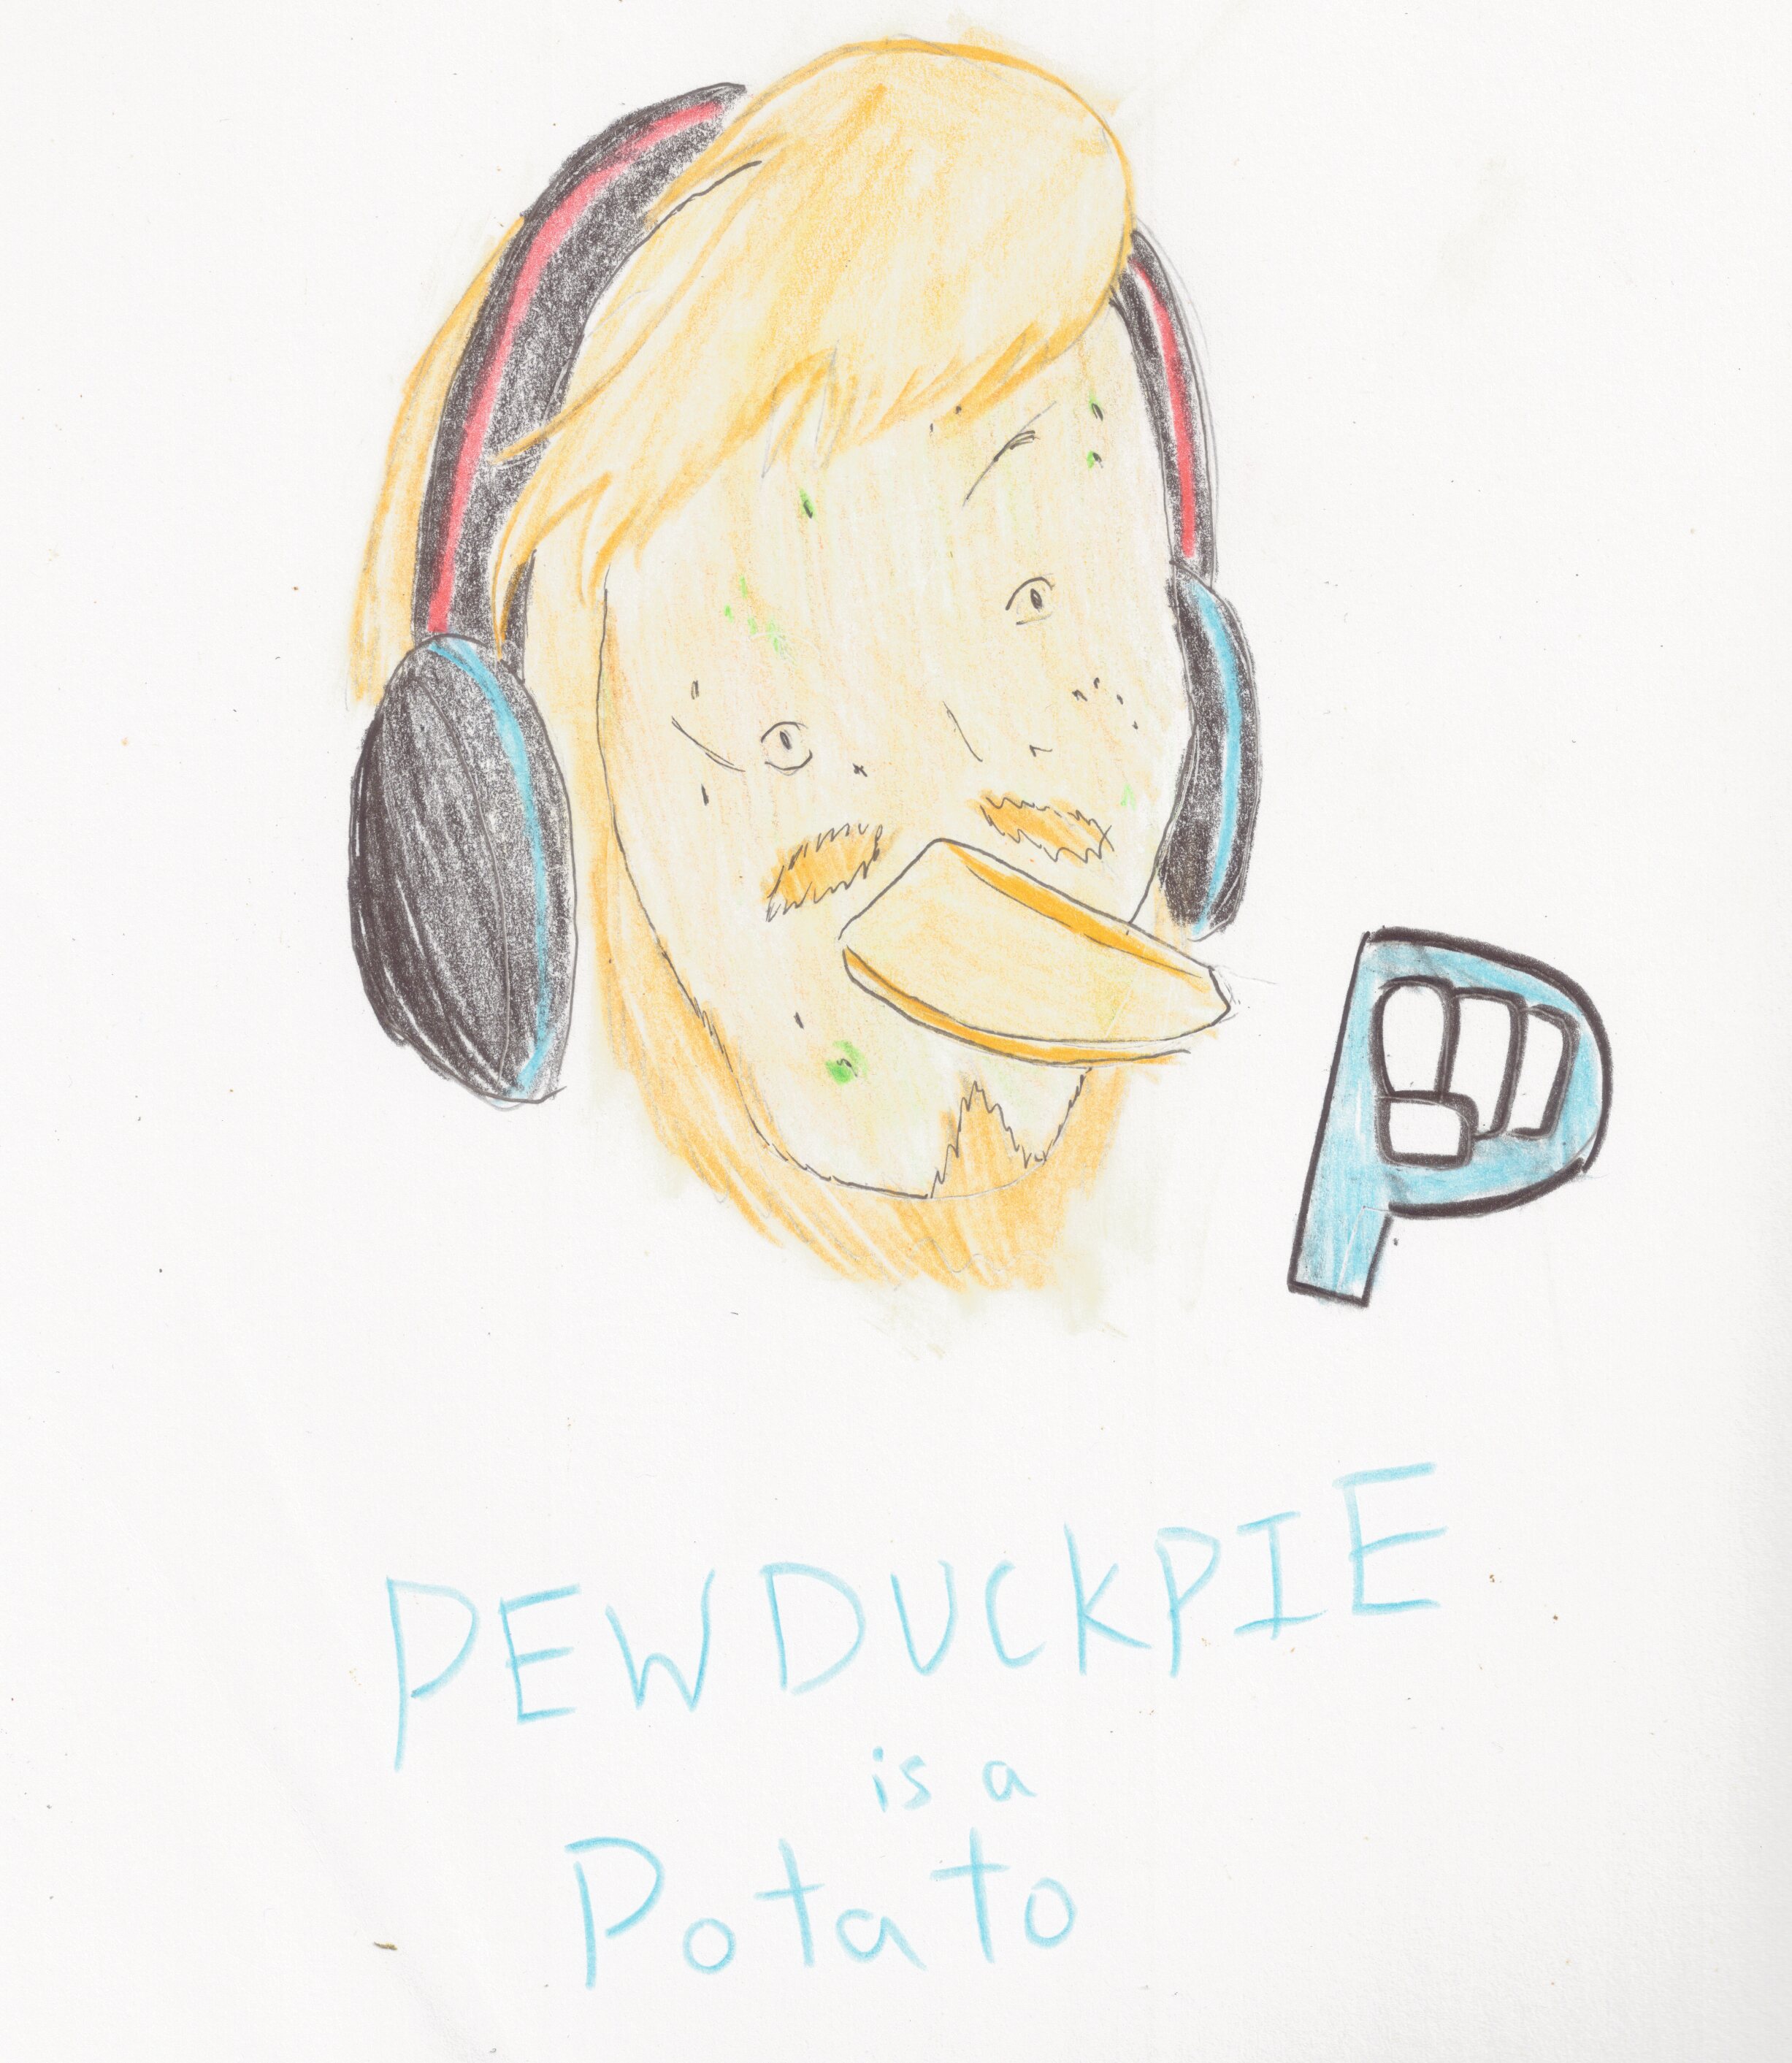 P
PEWDUCKPIE
is a
Potato